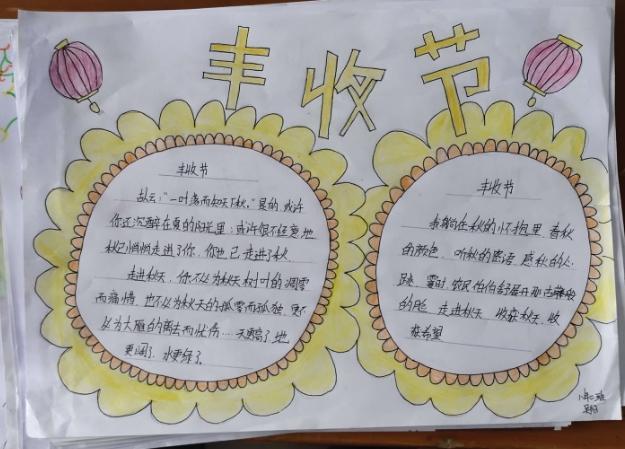 丰收节
丰收节
故云："一叶落而知天下秋。"是的 或许
你还沉醉在夏的阳光里；或许很不经意地
秋已悄悄走进了你，你也已走进了秋
走进秋天，你不以为秋天树叶的凋零
而痛惜，也不以为秋天的孤零而孤独，更不
以为大雁的离去而忧伤……天更高了，地
更阔了，水更绿了。
丰收节
依偎在秋的怀抱里 看秋
的颜色，听秋的密语 感秋的心
跳，霎时，农民伯伯舒展开那古铜般
的脸 走进秋天 收获秋天，收
获希望